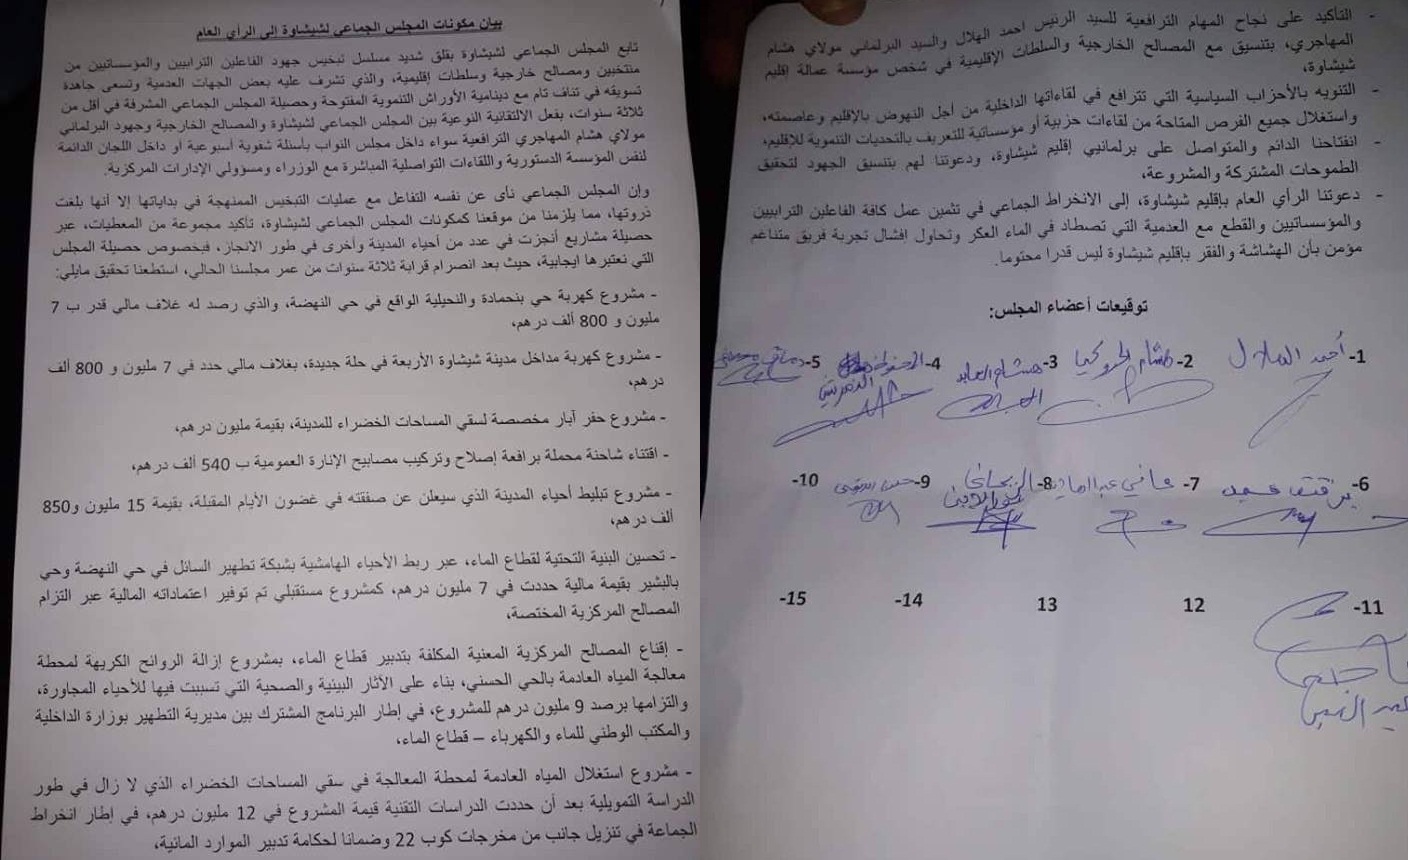 بيان مكونات المجلس الجماعي لشيشاوة إلى الرأي العام
تابع المجلس الجماعي لشيشاوة بقلق شديد مسلسل تبخيس جهود الفاعلين الترابيين والمؤسساتيين من
منتخبين ومصالح خارجية وسلطات إقليمية، والذي تشرف عليه بعض الجهات العدمية وتسعى جاهدة
تسويقه في تناف تام مع دينامية الأوراش التنموية المفتوحة وحصيلة المجلس الجماعي المشرفة في أقل من
ثلاثة سنوات، بفعل الالتقائية النوعية بين المجلس الجماعي لشيشاوة والمصالح الخارجية وجهود البرلماني
مولاي هشام المهاجري الترافعية سواء داخل مجلس النواب بأسئلة شفوية أسبوعية أو داخل اللجان الدائمة
لنفس المؤسسة الدستورية واللقاءات التواصلية المباشرة مع الوزراء ومسؤولي الإدارات المركزية.
وإن المجلس الجماعي نأى عن نفسه التفاعل مع عمليات التبخيس الممنهجة في بداياتها إلا أنها بلغت
ذروتها، مما يلزمنا من موقعنا كمكونات المجلس الجماعي لشيشاوة، تأكيد مجموعة من المعطيات، عبر
حصيلة مشاريع أنجزت في عدد من أحياء المدينة وأخرى في طور الانجاز، فبخصوص حصيلة المجلس
التي نعتبرها ايجابية، حيث بعد انصرام قرابة ثلاثة سنوات من عمر مجلسنا الحالي، استطعنا تحقيق مايلي:
- مشروع كهربة حي بنحمادة والنحيلية الواقع في حي النهضة، والذي رصد له غلاف مالي قدر ب 7
مليون و 800 ألف درهم،
- مشروع كهربة مداخل مدينة شيشاوة الأربعة في حلة جديدة، بغلاف مالي حدد في 7 مليون و 800 ألف
درهم،
- مشروع حفر آبار مخصصة لسقي المساحات الخضراء للمدينة، بقيمة مليون درهم،
- اقتناء شاحنة محملة برافعة إصلاح وتركيب مصابيح الإنارة العمومية ب 540 ألف درهم،
- مشروع تبليط أحياء المدينة الذي سيعلن عن صفقته في غضون الأيام المقبلة، بقيمة 15 مليون و850
ألف درهم،
- تحسين البنية التحتية لقطاع الماء، عبر ربط الأحياء الهامشية بشبكة تطهير السائل في حي النهضة وحي
بالبشير بقيمة مالية حددت في 7 مليون درهم، كمشروع مستقبلي تم توفير اعتماداته المالية عبر التزام
المصالح المركزية المختصة،
- إقناع المصالح المركزية المعنية المكلفة بتدبير قطاع الماء، بمشروع إزالة الروائح الكريهة لمحطة
معالجة المياه العادمة بالحي الحسني، بناء على الأثار البيئية والصحية التي تسببت فيها للأحياء المجاورة،
والتزامها برصد 9 مليون درهم للمشروع، في إطار البرنامج المشترك بين مديرية التطهير بوزارة الداخلية
والمكتب الوطني للماء والكهرباء – قطاع الماء،
- مشروع استغلال المياه العادمة لمحطة المعالجة في سقي المساحات الخضراء الذي لا زال في طور
الدراسة التمويلية بعد أن حددت الدراسات التقنية قيمة المشروع في 12 مليون درهم، في إطار انخراط
الجماعة في تنزيل جانب من مخرجات كوب 22 وضمانا لحكامة تدبير الموارد المائية،
- التأكيد على نجاح المهام الترافعية للسيد الرئيس احمد الهلال والسيد البرلماني مولاي هشام
المهاجري، بتنسيق مع المصالح الخارجية والسلطات الإقليمية في شخص مؤسسة عمالة إقليم
شيشاوة،
- التنويه بالأحزاب السياسية التي تترافع في لقاءاتها الداخلية من أجل النهوض بالإقليم وعاصمته،
واستغلال جميع الفرص المتاحة من لقاءات حزبية أو مؤسساتية للتعريف بالتحديات التنموية للإقليم،
- انفتاحنا الدائم والمتواصل على برلمانيي إقليم شيشاوة، ودعوتنا لهم بتنسيق الجهود لتحقيق
الطموحات المشتركة والمشروعة،
- دعوتنا الرأي العام بإقليم شيشاوة، إلى الانخراط الجماعي في تثمين عمل كافة الفاعلين الترابيين
والمؤسساتيين والقطع مع العدمية التي تصطاد في الماء العكر وتحاول افشال تجربة فريق متناغم
مؤمن بأن الهشاشة والفقر بإقليم شيشاوة ليس قدرا محتوما.
توقيعات أعضاء المجلس:
1- أحمد الهلال 2- هشام 3- هشام العابد 4- 5-
6- 7- 8- 9- حسن 10-
11- 12 13 14- 15-